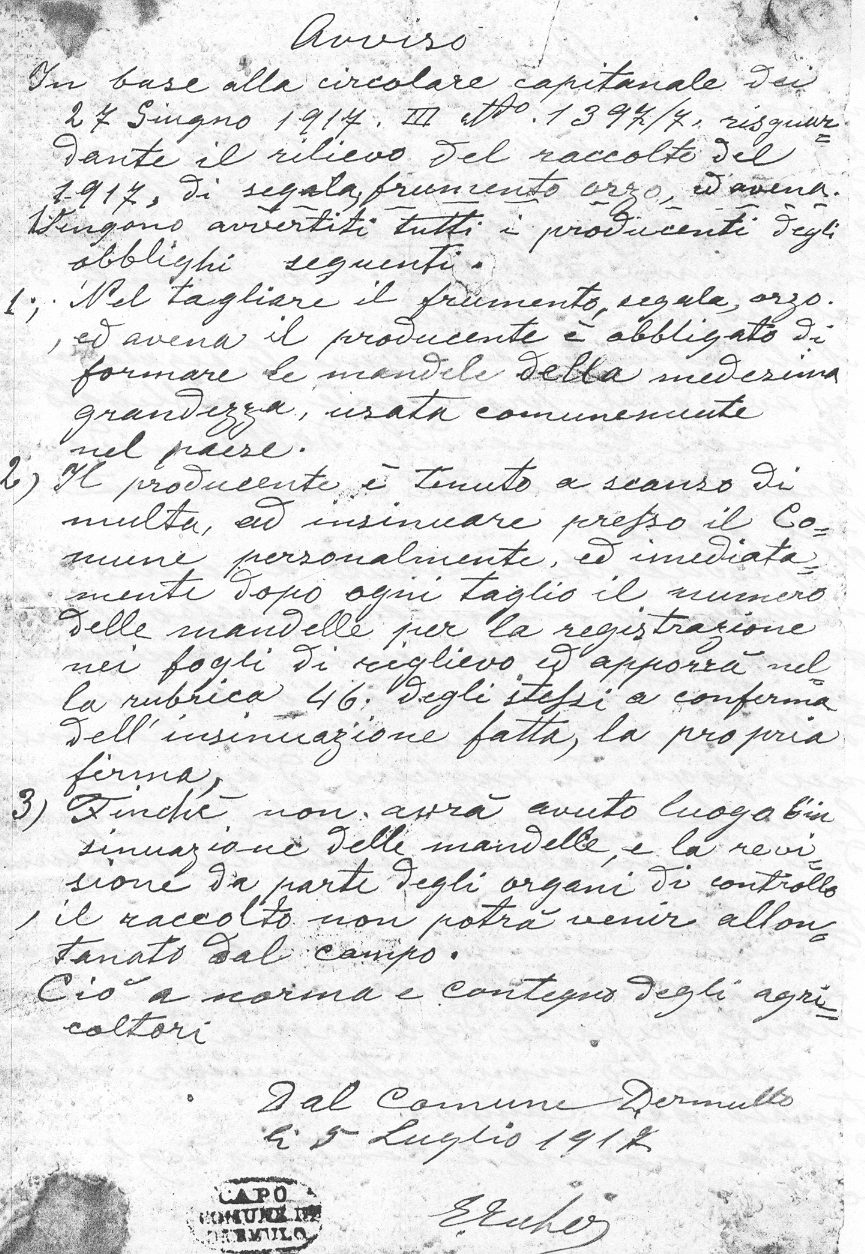 Avviso
In base alla circolare capitanale dei
27 Giugno 1917. III No. 1397/7. risguar=
dante il rilievo del raccolto del
1917, di segala, frumento orzo, ed avena.
Vengono avvertiti tutti i producenti degli
obblighi seguenti.
1; Nel tagliare il frumento, segala, orzo.
, ed avena il producente è obbligato di
formare le mandele della medesima
grandezza, usata comunemente
nel paese.
2) Il producente è tenuto a scanso di
multa, ad insinuare presso il Co=
mune personalmente, ed imediata=
mente dopo ogni taglio il numero
delle mandelle per la registrazione
nei fogli di riglievo ed apporrà nel=
la rubrica 46; degli stessi a conferma
dell'insinuazione fatta, la propria
firma,
3) Finchè non avrà avuto luogo l'in
sinuazione delle mandelle, e la revi=
sione da parte degli organi di controllo
, il raccolto non potrà venir allon=
tanato dal campo.
Ciò a norma e contegno degli agri=
coltori
Dal Comune Dermullo
li 5 Luglio 1917
CAPO
COMUNE DI
DERMULO